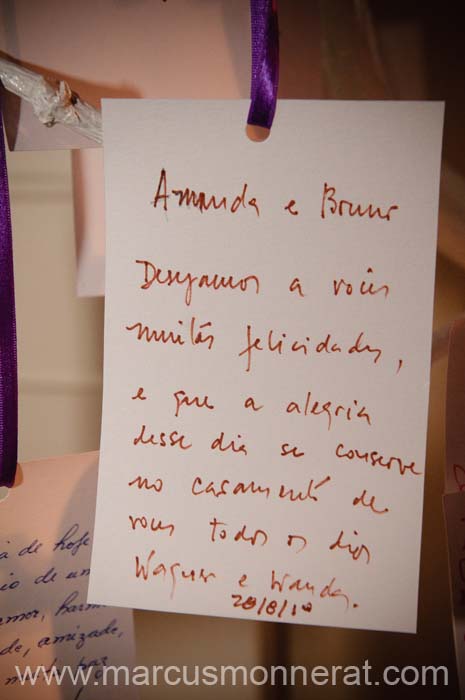 Amanda e Bruno
Desejamos a vocês
muitas felicidades,
e que a alegria
desse dia se conserve
no casamento de
voces todos os dias
Wagner e Wanda.
28/8/10
de hoje
de um
amor, harm
de, amizade,
paz
www.marcusmonnerat.com